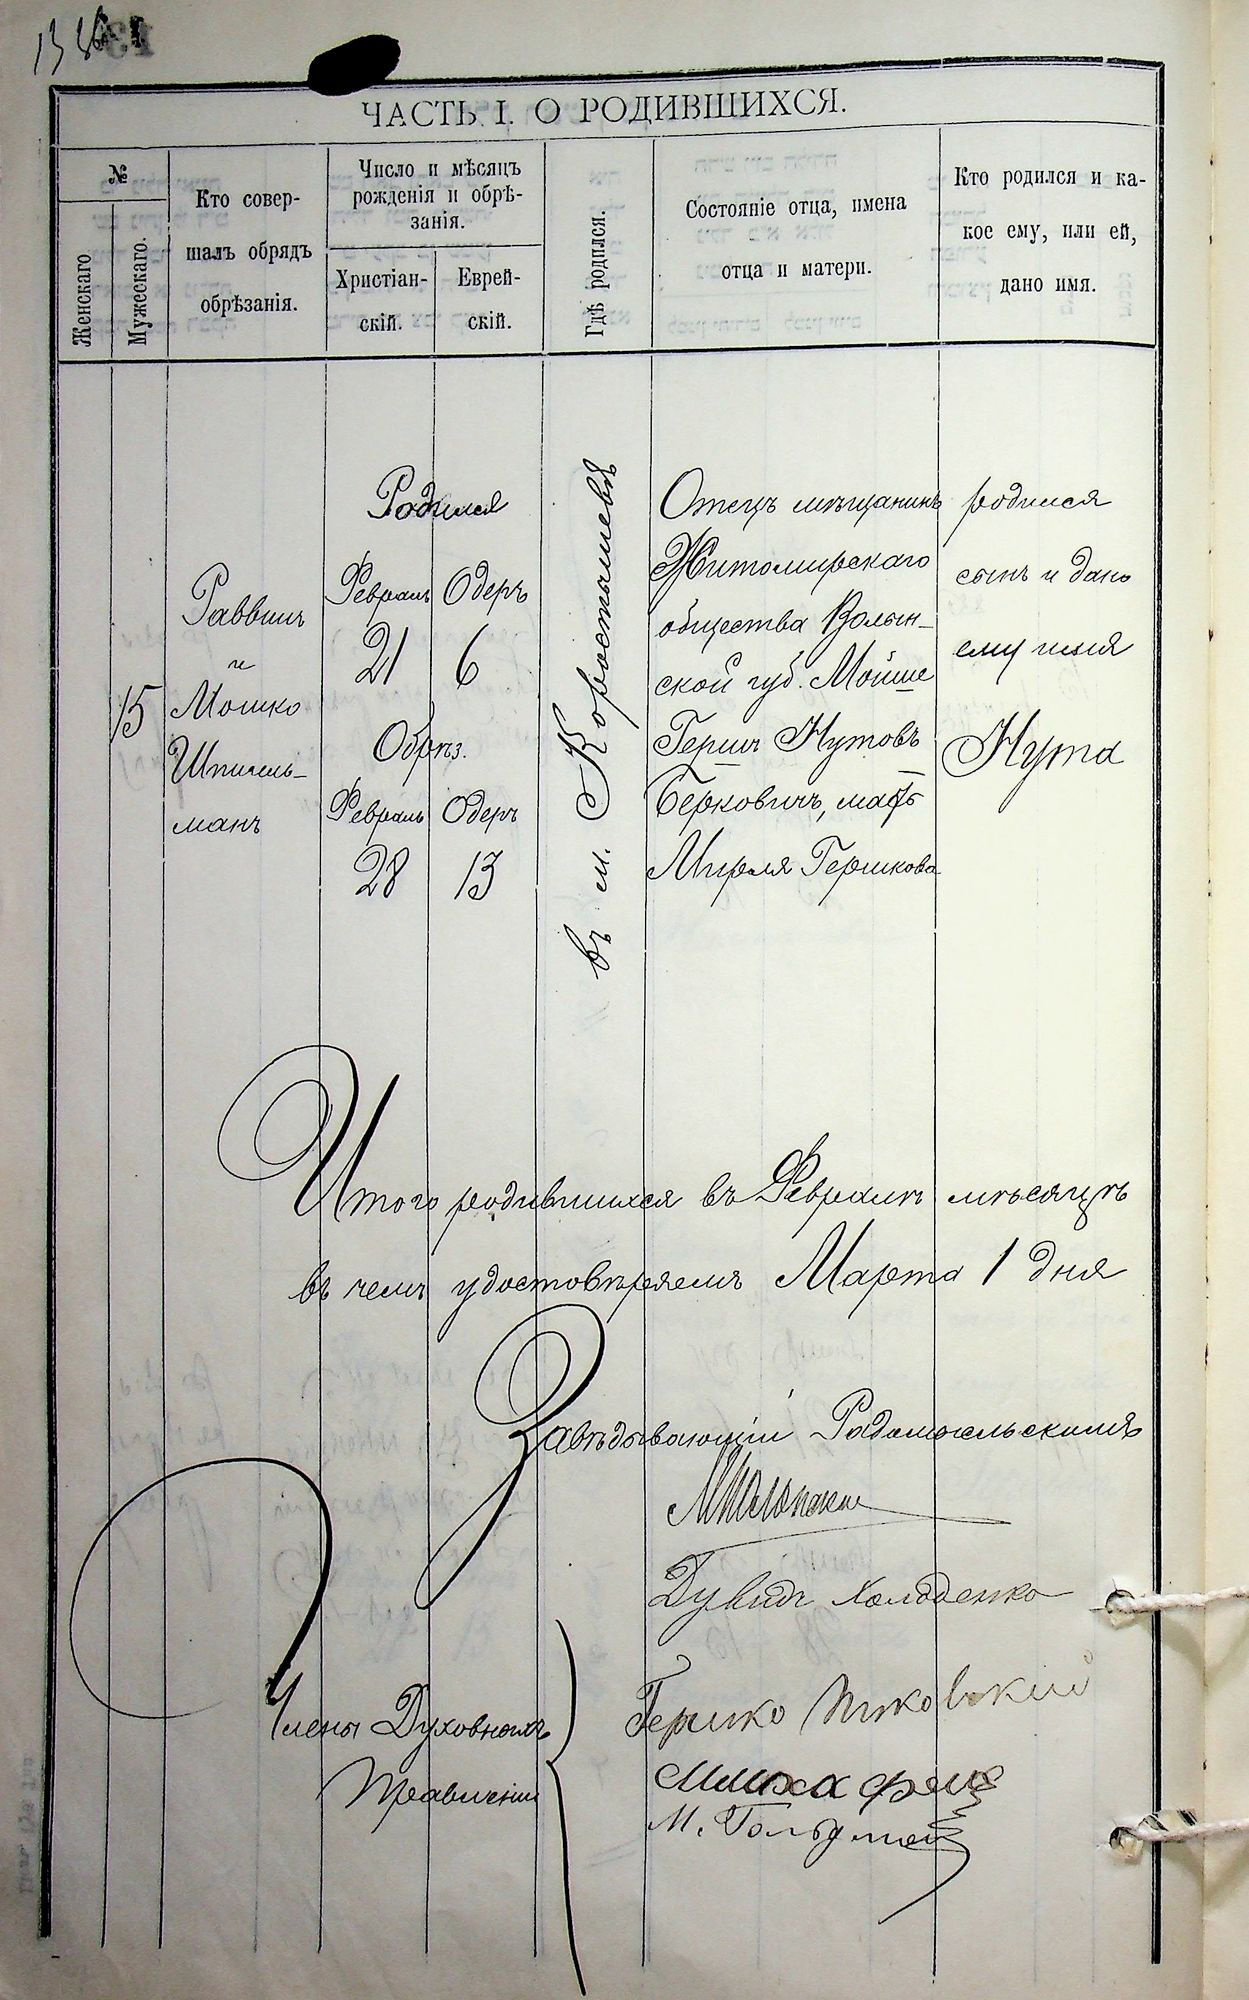 ЧАСТЬ I. О РОДИВШИХСЯ.
№
Женскаго
Мужескаго.
Кто совер-
шалъ обрядъ
обрѣзанія.
Число и мѣсяцъ
рожденія и обрѣ-
занія.
Христіан-
скій.
Еврей-
скій.
Гдѣ родился.
Состояніе отца, имена
отца и матери.
Кто родился и ка-
кое ему, или ей,
дано имя.
15
Раввинъ
и
Мошко
Шпигель-
манъ
Родился
Февраль Одеръ
21 6
Обрѣз.
Февраль Одеръ
28 13
въ м. Коростышевѣ
Отецъ мѣщанинъ
Житомирскаго
общества Волын-
ской губ. Мойше
Гершъ Нутовъ
Берковичъ, мать
Мирля Гершкова
родился
сынъ и дано
ему имя
Нута
Итого родившихся въ Февралѣ мѣсяцѣ
въ чемъ удостовѣряемъ Марта 1 дня
Завѣдывающій Радомысльскимъ
Дувидъ Холоденко
Члены Духовнаго
Правленія
Гершко
М. Гольдман